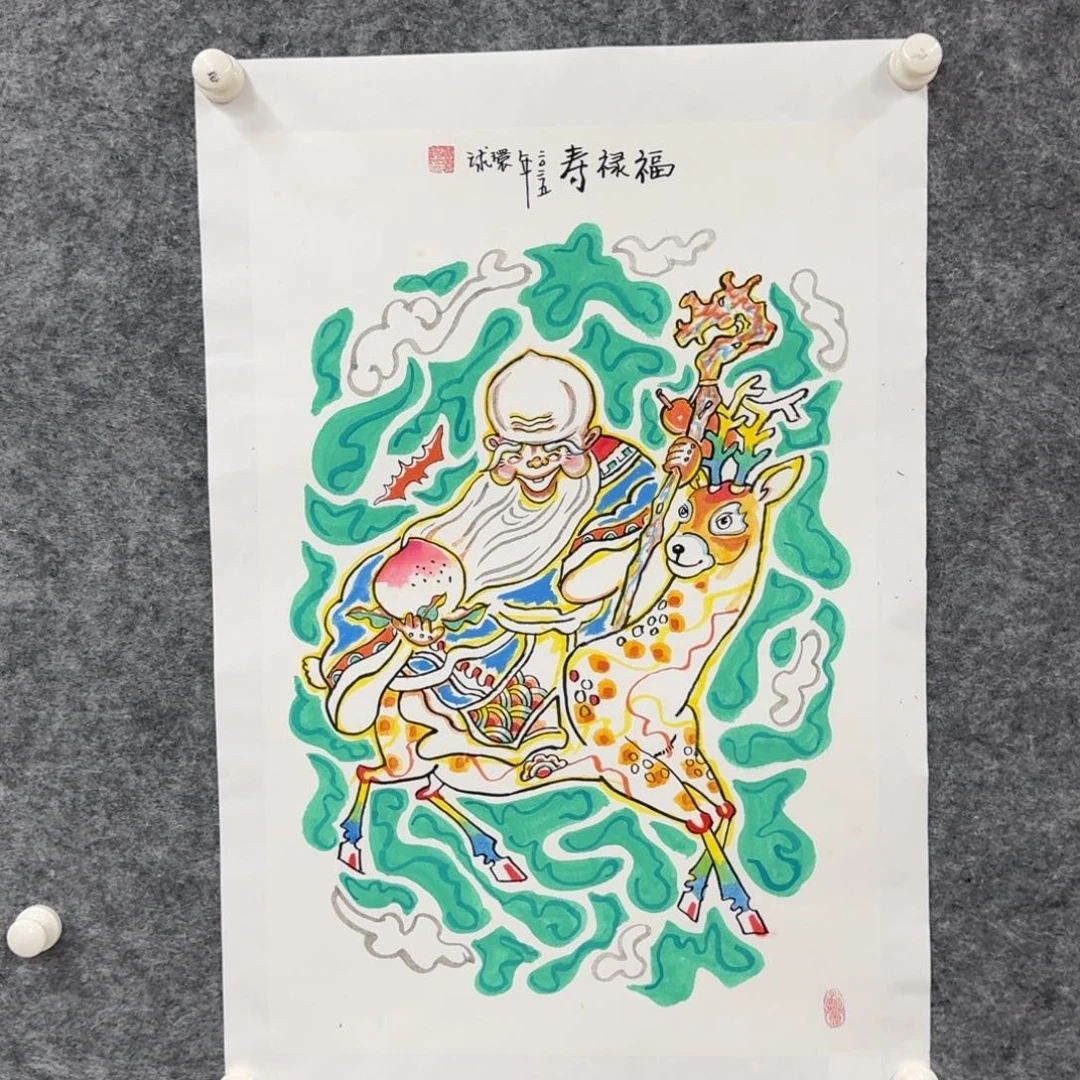 福禄寿 二〇二五年 環球